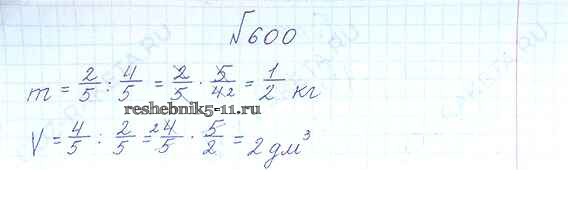 №600
m = 2/5 : 4/5 = 2/5 · 5/42 = 1/2 кг
reshebnik5-11.ru
V = 4/5 : 2/5 = 24/5 · 5/2 = 2 дм³